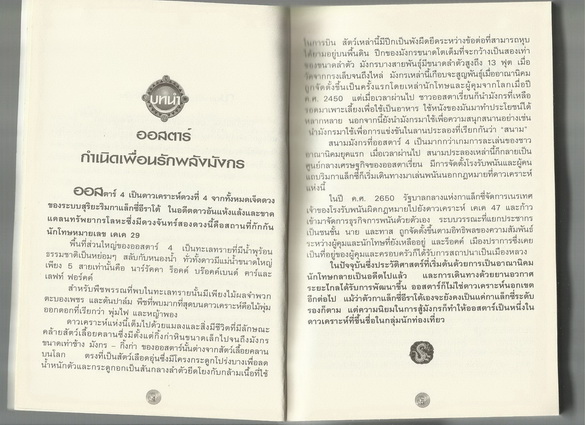 บทนำ
ออสตาร์
กำเนิดเพื่อนรักพลังมังกร
ออสตาร์ 4 เป็นดาวเคราะห์ดวงที่ 4 จากทั้งหมดเจ็ดดวง
ของระบบสุริยะริมกาแล็กซี่อีราโต้ ในอดีตดาวอันแห้งแล้งและขาด
แคลนทรัพยากรโลหะซึ่งมีดวงจันทร์สองดวงนี้คือสถานที่กักกัน
นักโทษหมายเลข เคเค 29
พื้นที่ส่วนใหญ่ของออสตาร์ 4 เป็นทะเลทรายที่มีน้ำพุร้อน
ธรรมชาติเป็นหย่อมๆ สลับกับหนองน้ำ ทั่วทั้งดาวมีแม่น้ำขนาดใหญ่
เพียง 5 สายเท่านั้นคือ นาร์รัคคา ร็อคค์ บร็อคค์เบนด์ คาร์และ
เลฟท์ ฟอร์คค์
สำหรับพืชพรรณที่พบในทะเลทรายนั้นมีเพียงไม้ผลจำพวก
ตะบองเพชร และต้นปาล์ม พืชที่พบมากที่สุดบนดาวเคราะห์คือไม้พุ่ม
ออกดอกที่เรียกว่า พุ่มไฟ และหญ้าพอง
ดาวเคราะห์แห่งนี้เต็มไปด้วยแมลงและสิ่งมีชีวิตที่มีลักษณะ
คล้ายสัตว์เลื้อยคลานซึ่งมีตั้งแต่กิ้งก่าหินขนาดเล็กไปจนถึงมังกร
ขนาดเท่าช้าง มังกร - กิ้งก่า ของออสตาร์นั้นต่างจากสัตว์เลื้อยคลาน
บนโลก ตรงที่เป็นสัตว์เลือดอุ่นซึ่งมีโครงกระดูกโปร่งบางเพื่อลด
น้ำหนักตัวและกระดูกอกเป็นสันกลางลำตัวยึดโยงกับกล้ามเนื้อที่ใช้
ในการบิน สัตว์เหล่านี้มีปีกเป็นพังผืดยึดระหว่างข้อต่อที่สามารถหุบ
ได้ยามอยู่บนพื้นดิน ปีกของมังกรขนาดโตเต็มที่จะกว้างเป็นสองเท่า
ของขนาดลำตัว มังกรบางสายพันธุ์มีขนาดลำตัวสูงถึง 13 ฟุต เมื่อ
วัดจากกรงเล็บจนถึงไหล่ มังกรเหล่านี้เกือบจะสูญพันธุ์เมื่ออาณานิคม
ถูกจัดตั้งขึ้นเป็นครั้งแรกโดยเหล่านักโทษและผู้คุมจากโลกเมื่อปี
ค.ศ. 2450 แต่เมื่อเวลาผ่านไป ชาวออสตาเรียนก็นำมังกรที่เหลือ
รอดมาเพาะเลี้ยงเพื่อใช้เป็นอาหาร ใช้หนังของมันมาทำประโยชน์ได้
หลากหลาย นอกจากนี้ยังนำมังกรมาใช้เพื่อความสนุกสนานอย่างเช่น
นำมังกรมาใช้เพื่อการแข่งขันในลานประลองที่เรียกกันว่า "สนาม"
สนามมังกรที่ออสตาร์ 4 เป็นมากกว่าเกมการละเล่นของชาว
อาณานิคมยุคแรก เมื่อเวลาผ่านไป สนามประลองเหล่านี้ก็กลายเป็น
ศูนย์กลางเศรษฐกิจของออสตาเรียน มีการจัดตั้งโรงรับพนันและผู้คน
แถบริมกาแล็กซี่ก็เริ่มเดินทางมาเล่นพนันนอกกฎหมายที่ดาวเคราะห์
แห่งนี้
ในปี ค.ศ. 2650 รัฐบาลกลางแห่งกาแล็กซี่จัดการเนรเทศ
เจ้าของโรงรับพนันผิดกฎหมายไปยังดาวเคราะห์ เคเค 47 และก้าว
เข้ามาจัดการธุรกิจการพนันด้วยตัวเอง ระบบวรรณะที่แยกประชากร
เป็นชนชั้น นาย และทาส ถูกจัดตั้งขึ้นตามอิทธิพลของความสัมพันธ์
ระหว่างผู้คุมและนักโทษที่ยังเหลืออยู่ และร็อคค์ เมืองปราการซึ่งเคย
เป็นที่อยู่ของผู้คุมและครอบครัวก็ได้รับการสถาปนาเป็นเมืองหลวง
ในปัจจุบันซึ่งประวัติศาสตร์ที่เริ่มต้นด้วยการเป็นอาณานิคม
นักโทษกลายเป็นอดีตไปแล้ว และการเดินทางด้วยยานอวกาศ
ระยะไกลได้รับการพัฒนาขึ้น ออสตาร์ก็ไม่ใช่ดาวเคราะห์นอกเขต
อีกต่อไป แม้ว่าตัวกาแล็กซี่อีราโต้เองจะยังคงเป็นแค่กาแล็กซี่ระดับ
รองก็ตาม แต่ความนิยมในการสู้มังกรก็ทำให้ออสตาร์เป็นหนึ่งใน
ดาวเคราะห์ที่ขึ้นชื่อในกลุ่มนักท่องเที่ยว